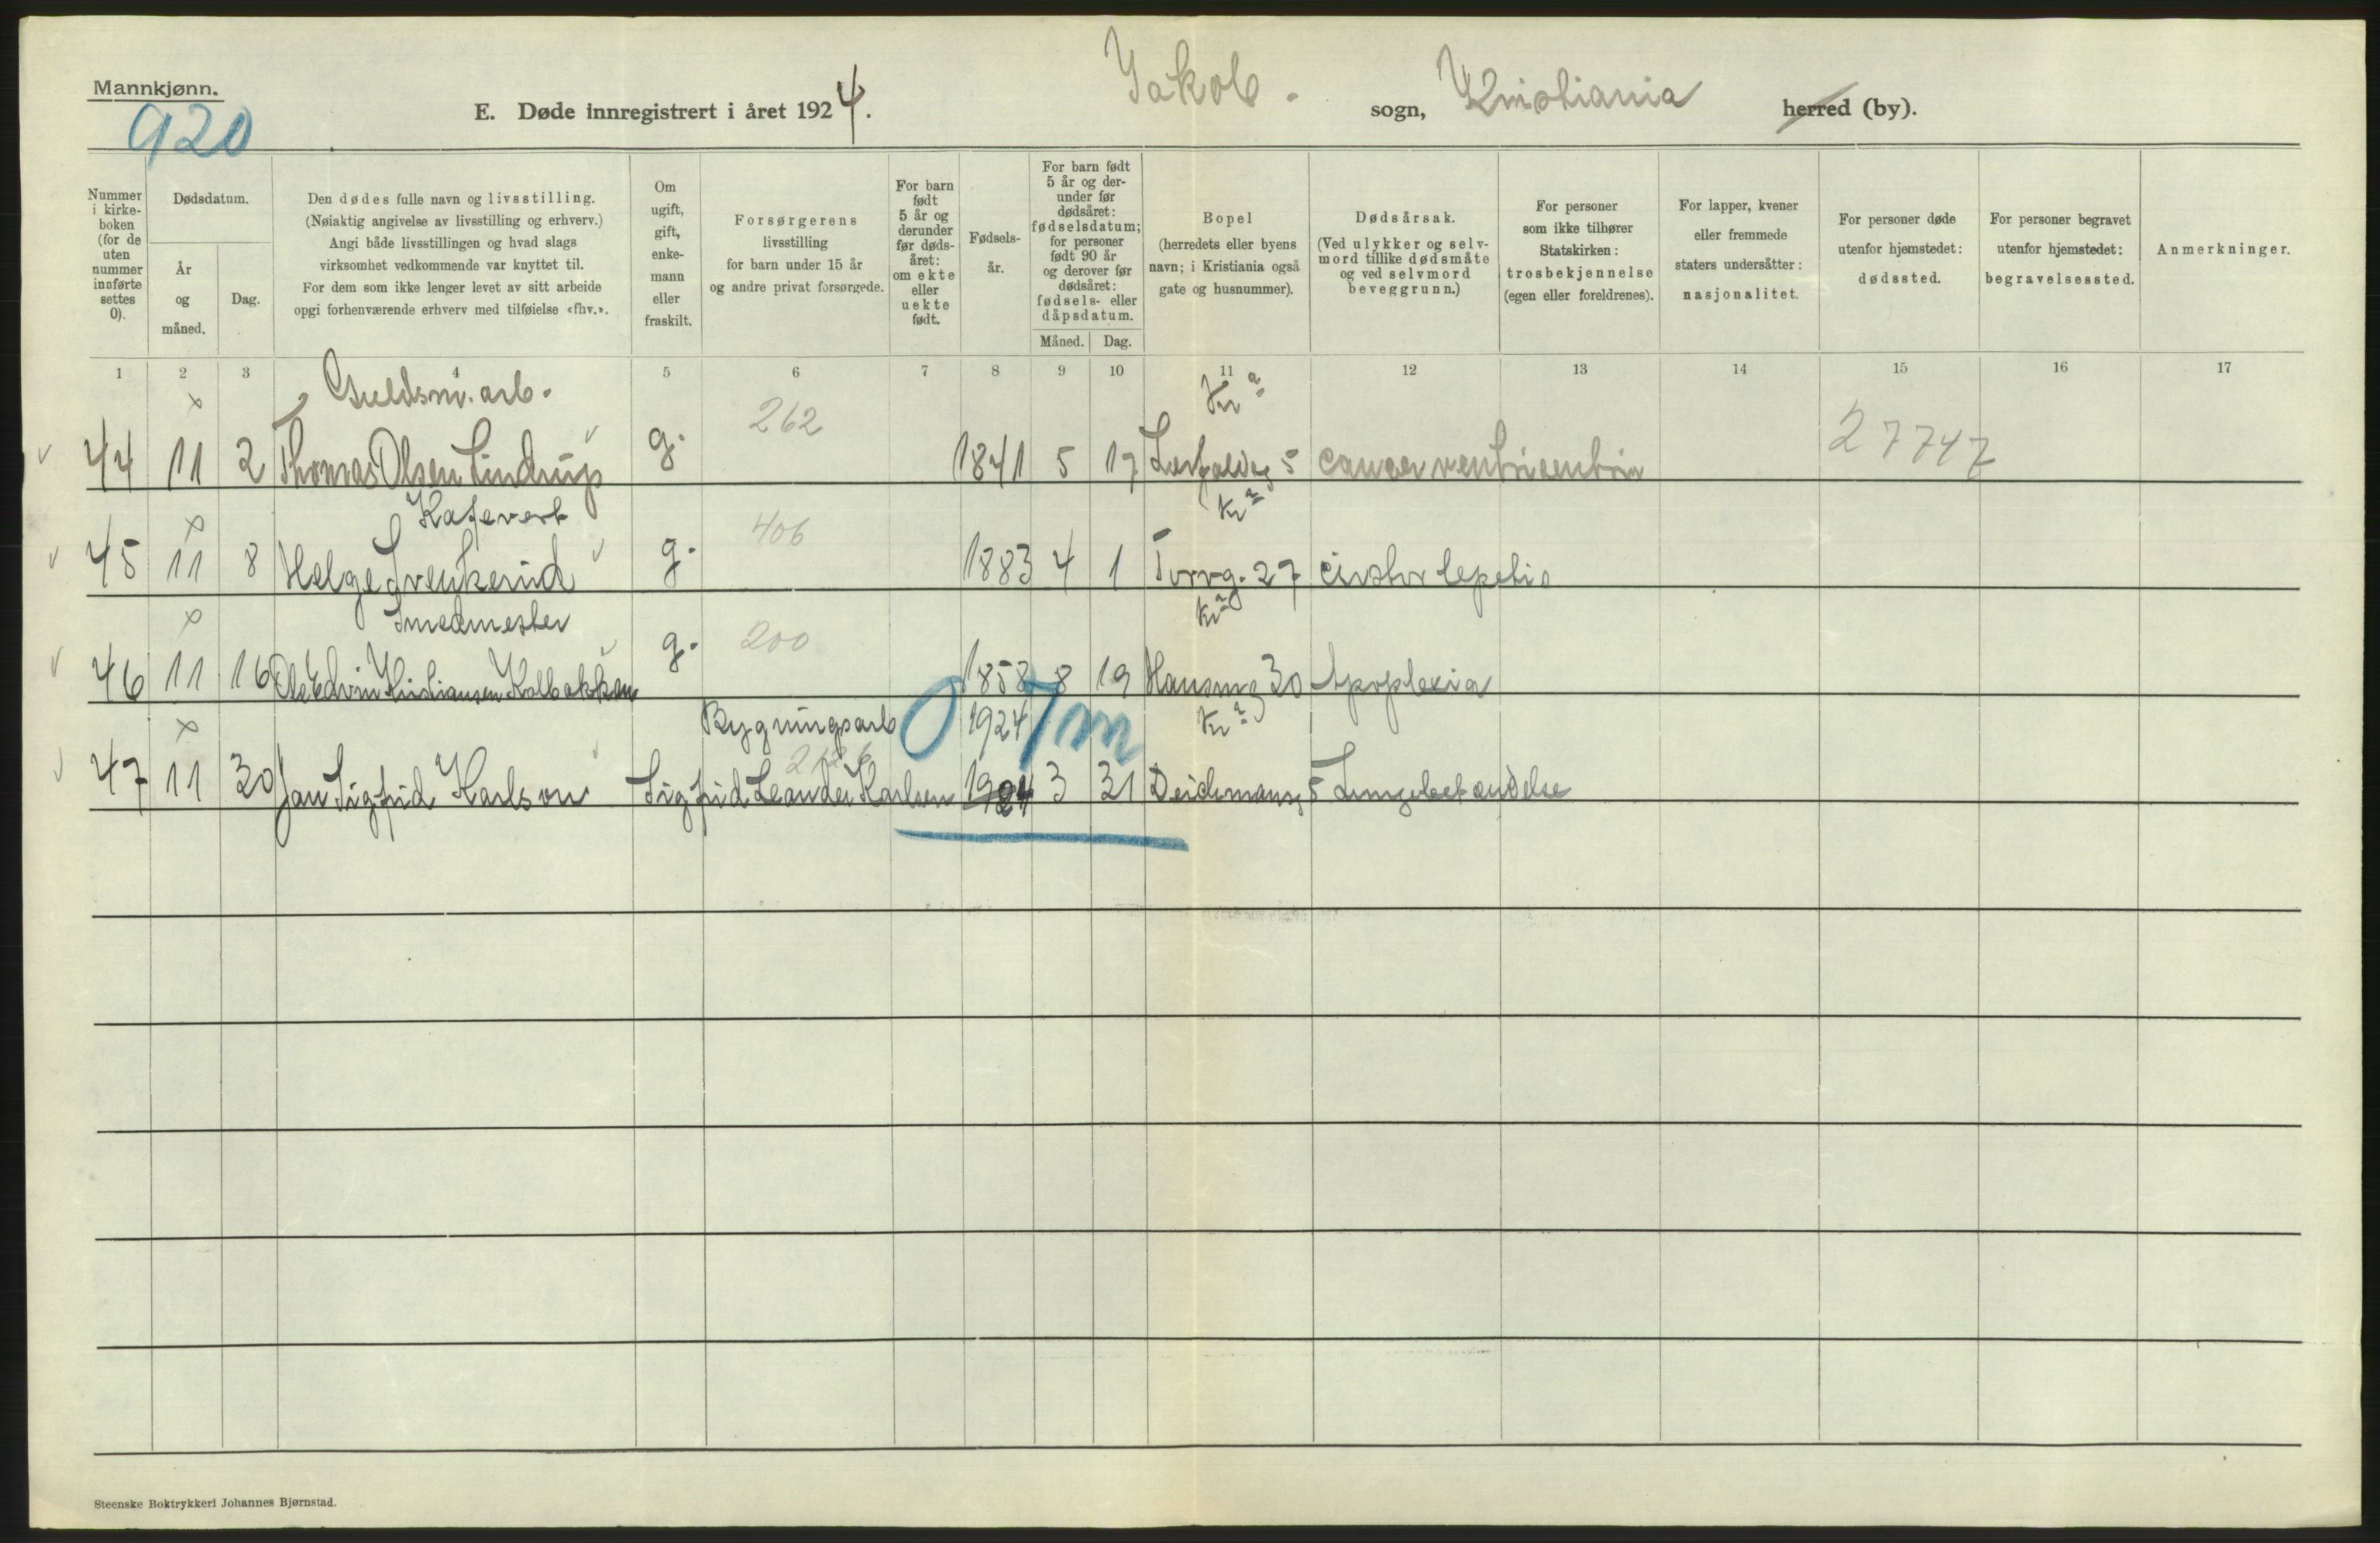 Mannkjønn.
920
E. Døde innregistrert i året 1924. Jakob. sogn, Kristiania herred (by).
Nummer i kirke- boken (for de uten nummer innførte settes 0).
Dødsdatum.
År og måned.
Dag.
Den dødes fulle navn og livsstilling.
(Nøiaktig angivelse av livsstilling og erhverv.)
Angi både livsstillingen og hvad slags
virksomhet vedkommende var knyttet til.
For dem som ikke lenger levet av sitt arbeide
opgi forhenværende erhverv med tilføielse «fhv.».
Om ugift, gift, enke- mann eller fraskilt.
Forsørgerens
livsstilling
for barn under 15 år
og andre privat forsørgede.
For barn født 5 år og derunder før døds- året: om ekte eller uekte født.
Fødsels- år.
For barn født 5 år og der- under før dødsåret: fødselsdatum; for personer født 90 år og derover før dødsåret: fødsels- eller dåpsdatum.
Måned.
Dag.
Bopel
(herredets eller byens
navn; i Kristiania også
gate og husnummer).
Dødsårsak.
(Ved ulykker og selv-
mord tillike dødsmåte
og ved selvmord
beveggrunn.)
For personer
som ikke tilhører
Statskirken:
trosbekjennelse
(egen eller foreldrenes).
For lapper, kvener
eller fremmede
staters undersåtter:
nasjonalitet.
For personer døde
utenfor hjemstedet:
dødssted.
For personer begravet
utenfor hjemstedet:
begravelsessted.
Anmerkninger.
1 2 3 4 5 6 7 8 9 10 11 12 13 14 15 16 17
x Guldsm. arb. 262 Kra 27747
44 11 2 Thomas Olsen Lindrup g. 1841 5 17 5 cancer
x Kafevert 406 Kra
45 11 8 Helge g. 1883 4 1 Torvg. 27
x Smedmester 200 Kra
46 11 16 Ole Edvin Kristiansen Kolbakken g. 1858 8 19 Hausmg 30 Apoplexia
x Bygningsarb 0 7m 1924 Kra
47 11 30 Jan Sigfrid Karlson Sigfrid Leander Karlsen 1924 3 31 Deichmansg 5 Lungebetendelse
Steenske Boktrykkeri Johannes Bjørnstad.